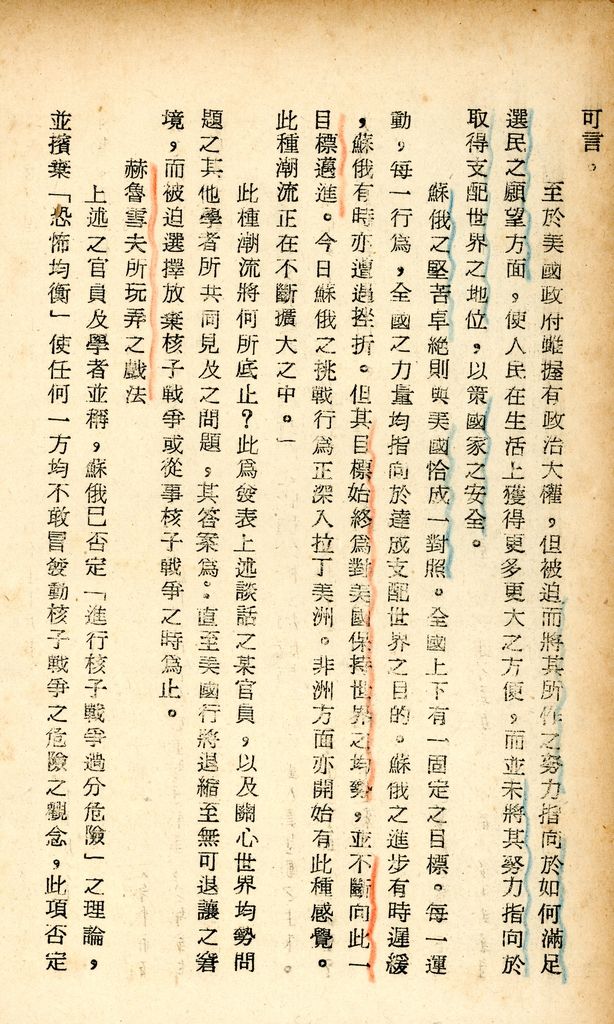 可言。
至於美國政府雖握有政治大權，但被迫而將其所作之努力指向於如何滿足
選民之願望方面，使人民在生活上獲得更多更大之方便，而並未將其努力指向於
取得支配世界之地位，以策國家之安全。
蘇俄之堅苦卓絕則與美國恰成一對照。全國上下有一固定之目標。每一運
動，每一行為，全國之力量均指向於達成支配世界之目的。蘇俄之進步有時遲緩
，蘇俄有時亦遭遇挫折。但其目標始終為對美國保持世界之均勢，並不斷向此一
目標邁進。今日蘇俄之挑戰行為正深入拉丁美洲。非洲方面亦開始有此種感覺。
此種潮流正在不斷擴大之中。」
此種潮流將何所底止？此為發表上述談話之某官員，以及關心世界均勢問
題之其他學者所共同見及之問題，其答案為。直至美國行將退縮至無可退讓之窘
境，而被迫選擇放棄核子戰爭或從事核子戰爭之時為止。
赫魯雪夫所玩弄之戲法
上述之官員及學者並稱，蘇俄已否定「進行核子戰爭過分危險」之理論，
並擯棄「恐怖均衡」使任何一方均不敢冒發動核子戰爭之危險之觀念，此項否定